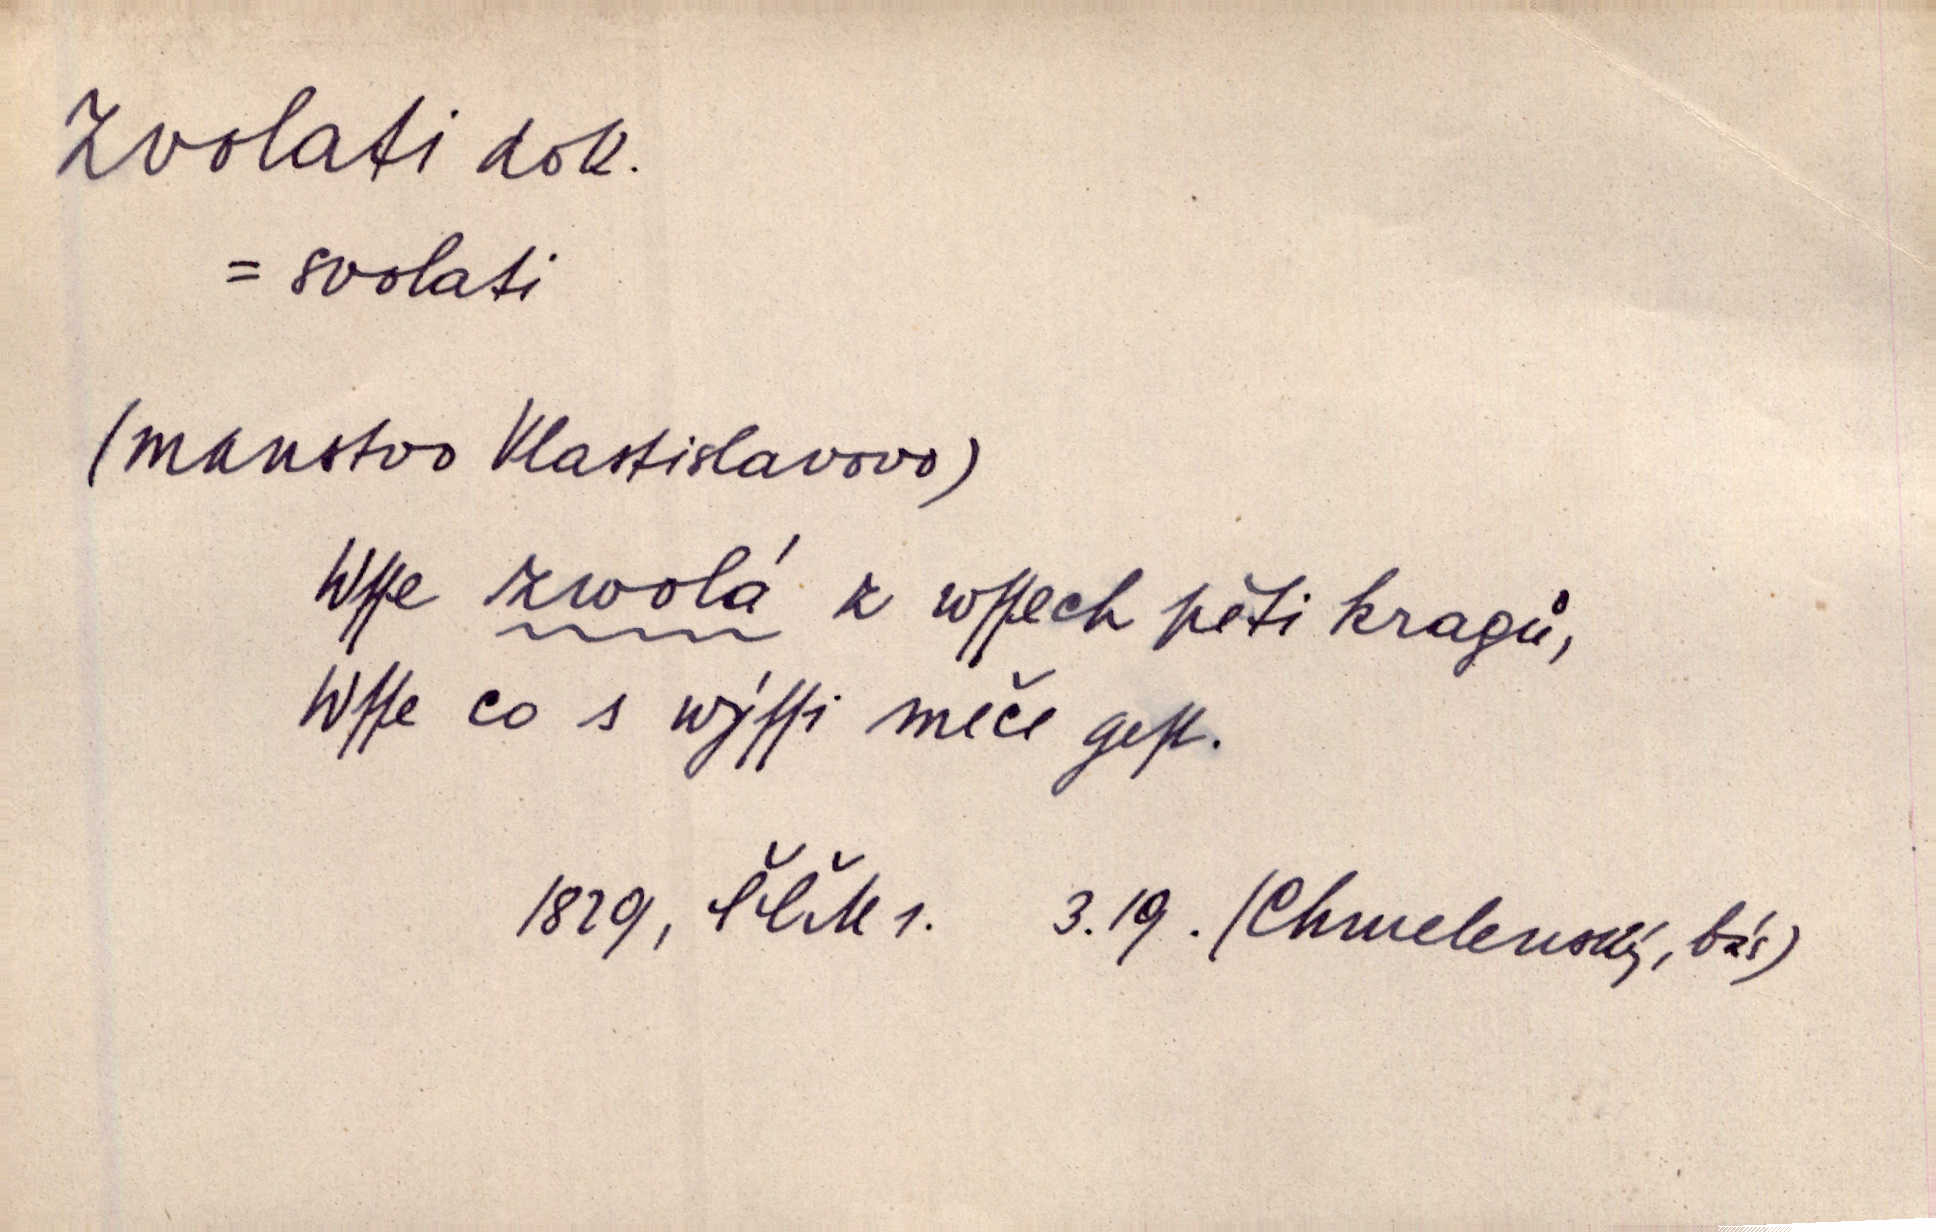 Zvolati dok.
= svolati
(manstvo Vlastislavovo)
Wſſe zwolá z wſſech pěti kragů,
Wſſe co s wýſſi meče geſt.
1829, ČČM 1. 3.19. (Chmelenský, bás)